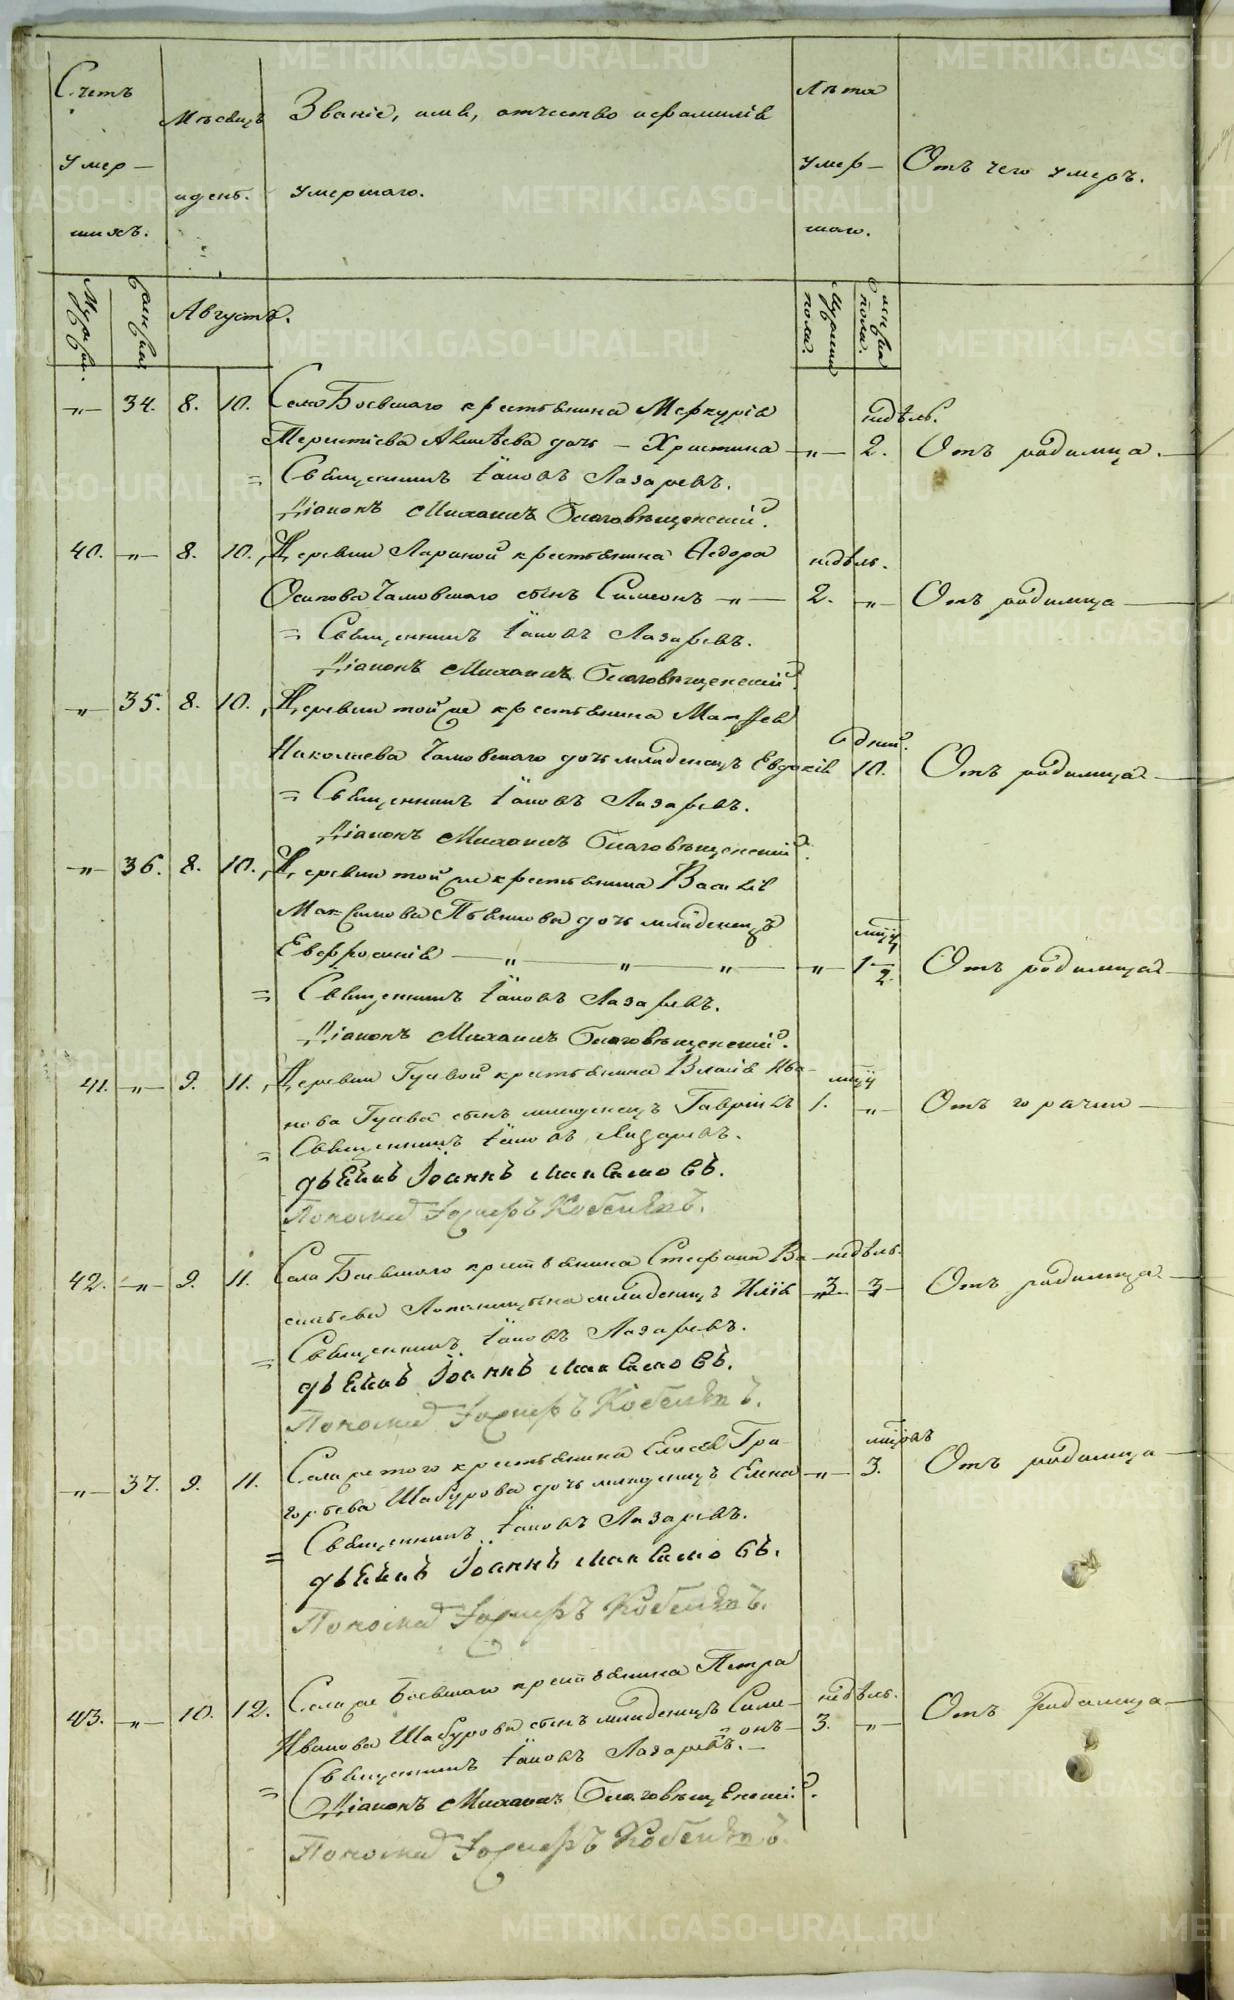 Счетъ умер-
шихъ.
Мѣсяцъ
и день.
Званіе, имя, отчество и фамилія
умершаго.
Лѣта
умер-
шаго.
Отъ чего умеръ.
Августъ.
Мужеска пола.
Женска пола.
„ 34. 8. 10. Села Боевскаго крестьянина Меркурія
недѣль.
Терентіева дочь – Христина „ 2. Отъ родимца.
= Священникъ Іаковъ Лазаревъ.
Діаконъ Михаилъ Благовѣщенскій.
40. „ 8. 10. Деревни крестьянина Ѳедора
недѣль.
Осипова сынъ Симеонъ „ 2. „ Отъ родимца
= Священникъ Іаковъ Лазаревъ.
Діаконъ Михаилъ Благовѣщенскій.
„ 35. 8. 10. Деревни той же крестьянина Матѳея
дней.
Николаева дочь младенецъ Евдокія 10. Отъ родимца
= Священникъ Іаковъ Лазаревъ.
Діаконъ Михаилъ Благовѣщенскій.
„ 36. 8. 10. Деревни той же крестьянина Василія
Максимова дочь младенецъ
Евфросинія „ „ „ „ 1 1/2. Отъ родимца
= Священникъ Іаковъ Лазаревъ.
Діаконъ Михаилъ Благовѣщенскій.
41. „ 9. 11. Деревни Гусевой крестьянина Власія Ива-
нова Гусева сынъ младенецъ Гавріилъ 1. „ Отъ горячки
= Священникъ Іаковъ Лазаревъ.
Дьячекъ Іоаннъ Максимовъ.
Пономарь
42. „ 9. 11. Села Боевскаго крестьянина Стефана Ва-
недѣль.
сильева младенецъ Илія 3 Отъ родимца
= Священникъ Іаковъ Лазаревъ.
Дьячекъ Іоаннъ Максимовъ.
Пономарь
„ 37. 9. 11. Села же того крестьянина Елисея Гри-
горьева Шабурова дочь младенецъ Елена „ 3. Отъ родимца
= Священникъ Іаковъ Лазаревъ.
Дьячекъ Іоаннъ Максимовъ.
Пономарь
43. „ 10. 12. Села же Боевскаго крестьянина Петра
недѣль.
Иванова Шабурова сынъ младенецъ Симе-
онъ 3. „ Отъ родимца
= Священникъ Іаковъ Лазаревъ.
Діаконъ Михаилъ Благовѣщенскій.
Пономарь
METRIKI.GASO-URAL.RU